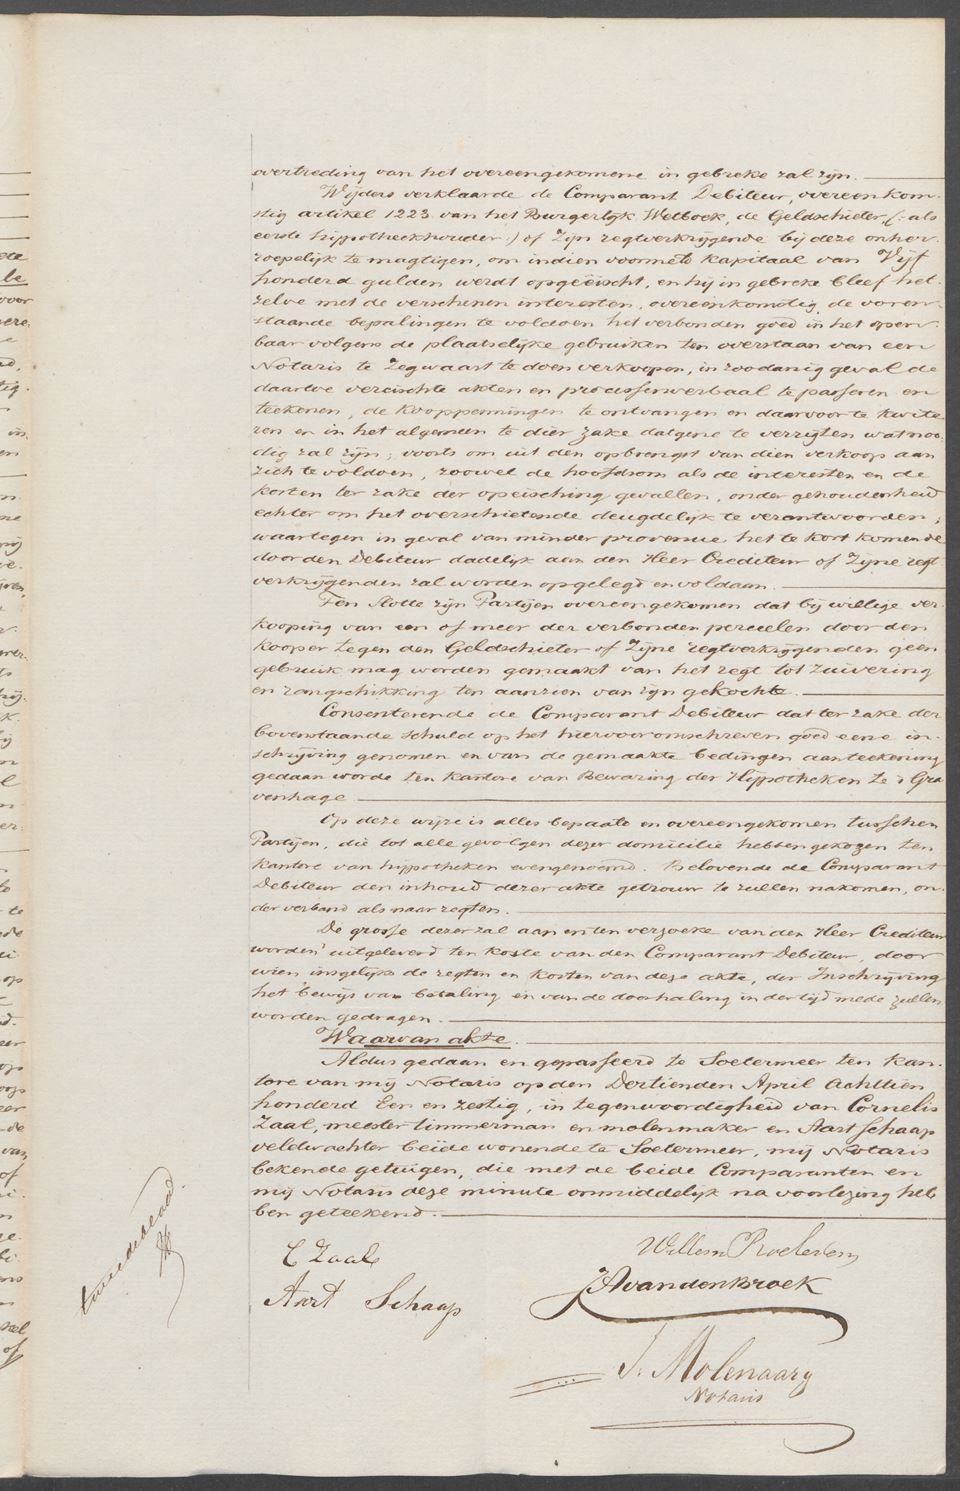 overtreding van het overeengekomene in gebreke zal zijn.
Wijders verklaarde de Comparant Debiteur, overeenkom-
stig artikel 1223 van het Burgerlijk Wetboek, de Geldschieter, (: als
eerste hijpotheekhouder :) of Zijn regtverkrijgende bij deze onher-
roepelijk te magtigen, om indien voormeld Kapitaal van Vijf
honderd gulden werdt opgeëischt, en hij in gebreke bleef het-
zelve met de verschenen interesten, overeenkomstig de voren-
staande bepalingen te voldoen het verbonden goed in het open-
baar volgens de plaatselijke gebruiken ten overstaan van een
Notaris te Zegwaart te doen verkoopen, in zoodanig geval de
daartoe vereischte akten en processenverbaal te passeren en
teekenen, de Kooppenningen te ontvangen en daarvoor te kwite-
ren en in het algemeen te dier zake datgene te verrigten wat noo-
dig zal zijn; voorts om uit den opbrengst van dien verkoop aan
zich te voldoen, zoowel de hoofdsom als de interesten en de
kosten ter zake der opeisching gevallen, onder gehoudenheid
echter om het overschietende deugdelijk te verantwoorden,
waartegen in geval van minder provenue het te kort komende
door den Debiteur dadelijk aan den Heer Crediteur of Zijne regt-
verkrijgenden zal worden opgelegd en voldaan.
Ten Slotte zijn Partijen overeengekomen dat bij willige ver-
kooping van een of meer der verbonden perceelen door den
kooper tegen den Geldschieter of Zijne regtverkrijgenden geen
gebruik mag worden gemaakt van het regt tot zuivering
en rangschikking ten aanzien van zijn gekochte.
Consenterende de Comparant Debiteur dat ter zake der
bovenstaande schuld op het hiervooromschreven goed eene in-
schrijving genomen en van de gemaakte bedingen aanteekening
gedaan worde ten kantore van Bewaring der Hijpotheken te 's Gra-
venhage
Op deze wijze is alles bepaald en overeengekomen tusschen
Partijen, die tot alle gevolgen dezer domicilie hebben gekozen ten
kantore van hijpotheken evengenoemd. Belovende de Comparant
Debiteur den inhoud dezer akte getrouw te zullen nakomen, on-
der verband als naar regten.
De grosse dezer zal aan en ten verzoeke van den Heer Crediteur
worden uitgeleverd ten koste van den Comparant Debiteur, door
wien insgelijks de regten en kosten van deze akte, der Inschrijving
het bewijs van betaling en van de doorhaling in der tijd mede zullen
worden gedragen.
Waarvan akte.
Aldus gedaan en gepasseerd te Soetermeer ten kan-
tore van mij Notaris op den Dertienden April Achttien
honderd Een en zestig, in tegenwoordigheid van Cornelis
Zaal, meester timmerman en molenmaker en Aart Schaap
veldwachter beide wonende te Soetermeer, mij Notaris
bekende getuigen, die met de beide Comparanten en
mij Notaris deze minute onmiddelijk na voorlezing heb-
ben geteekend.
C Zaal
Willem Roeleven
Aart Schaap
JA van den Broek
J. Molenaar
Notaris
tweede blad